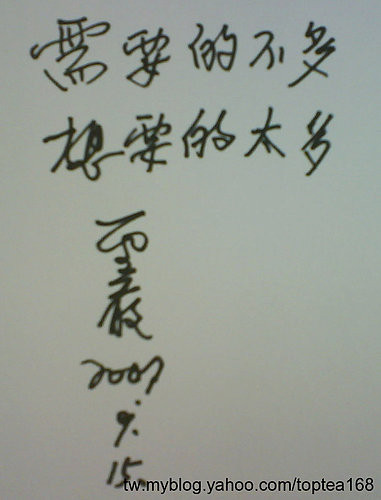 需要的不多
想要的太多
聖嚴
2007
9.
15.
tw.myblog.yahoo.com/toptea168